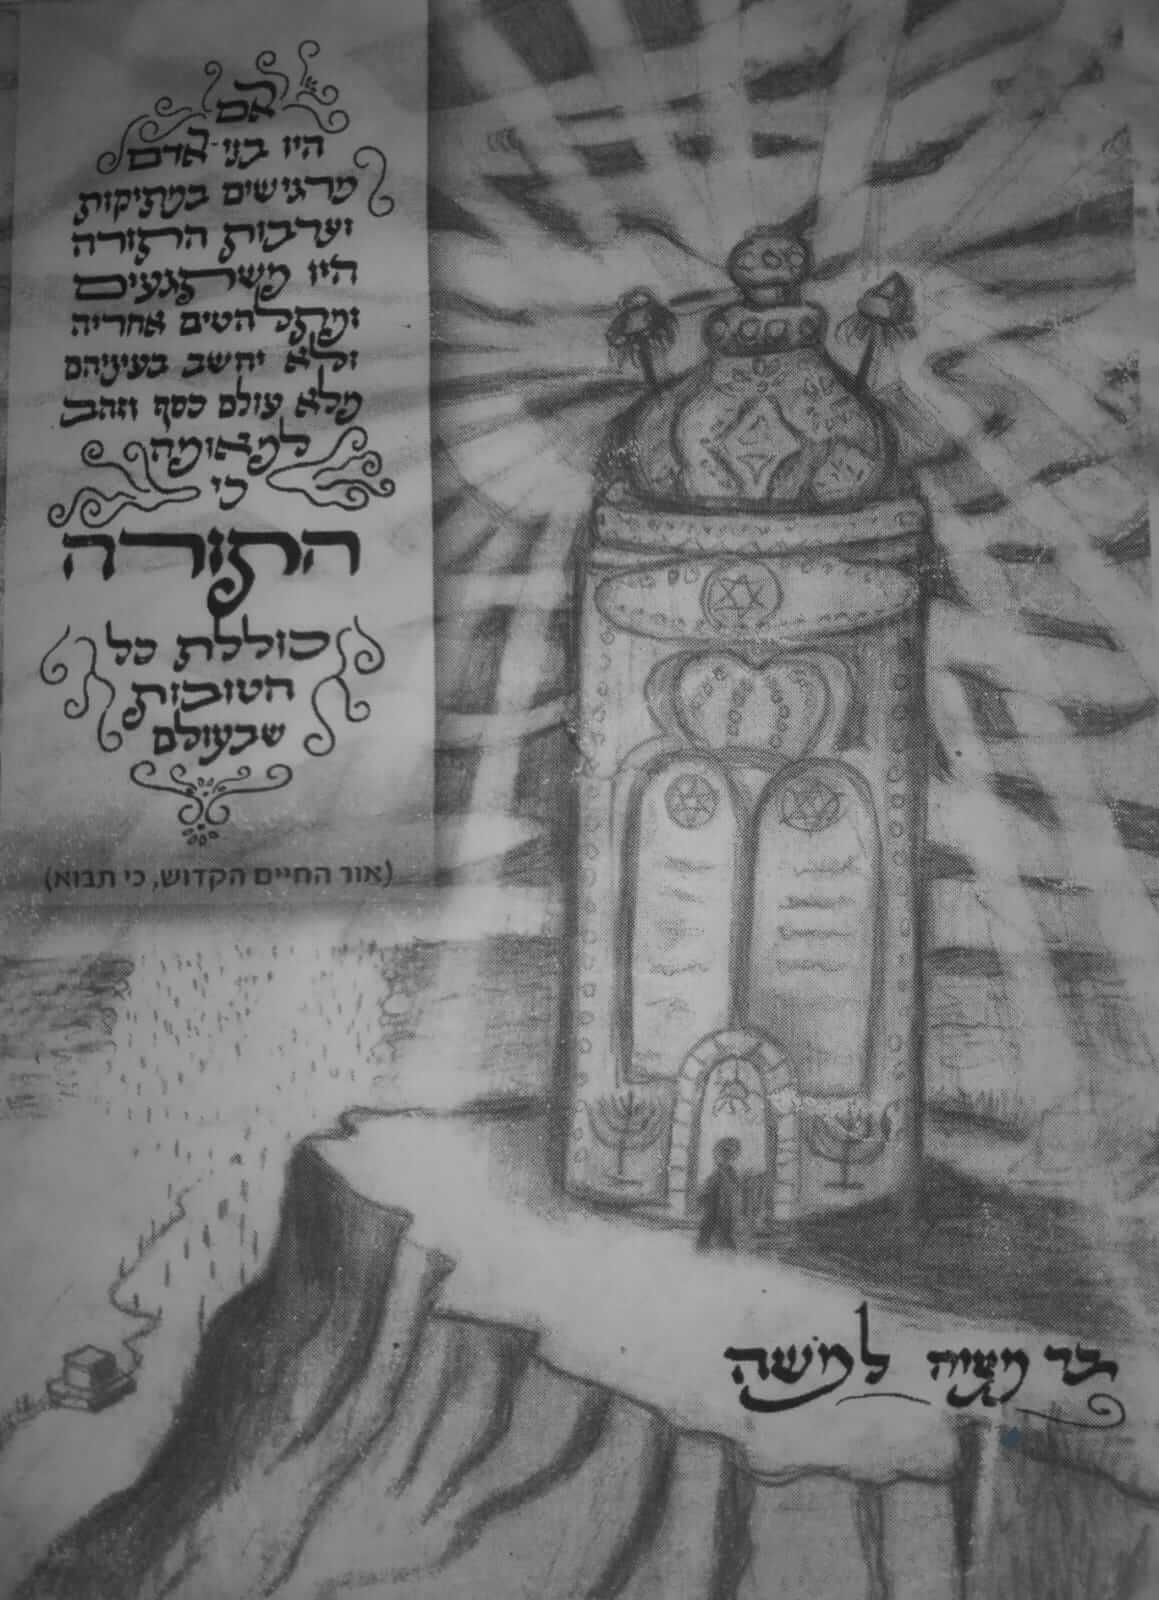 אם
היו בני-אדם
מרגישים במתיקות
וערבות התורה
היו משתגעים
ומתלהטים אחריה
ולא יחשב בעיניהם
מלא עולם כסף וזהב
למאומה
כי
התורה
כוללת כל
הטובות
שבעולם
(אור החיים הקדוש, כי תבוא)
בר מצוה למשה